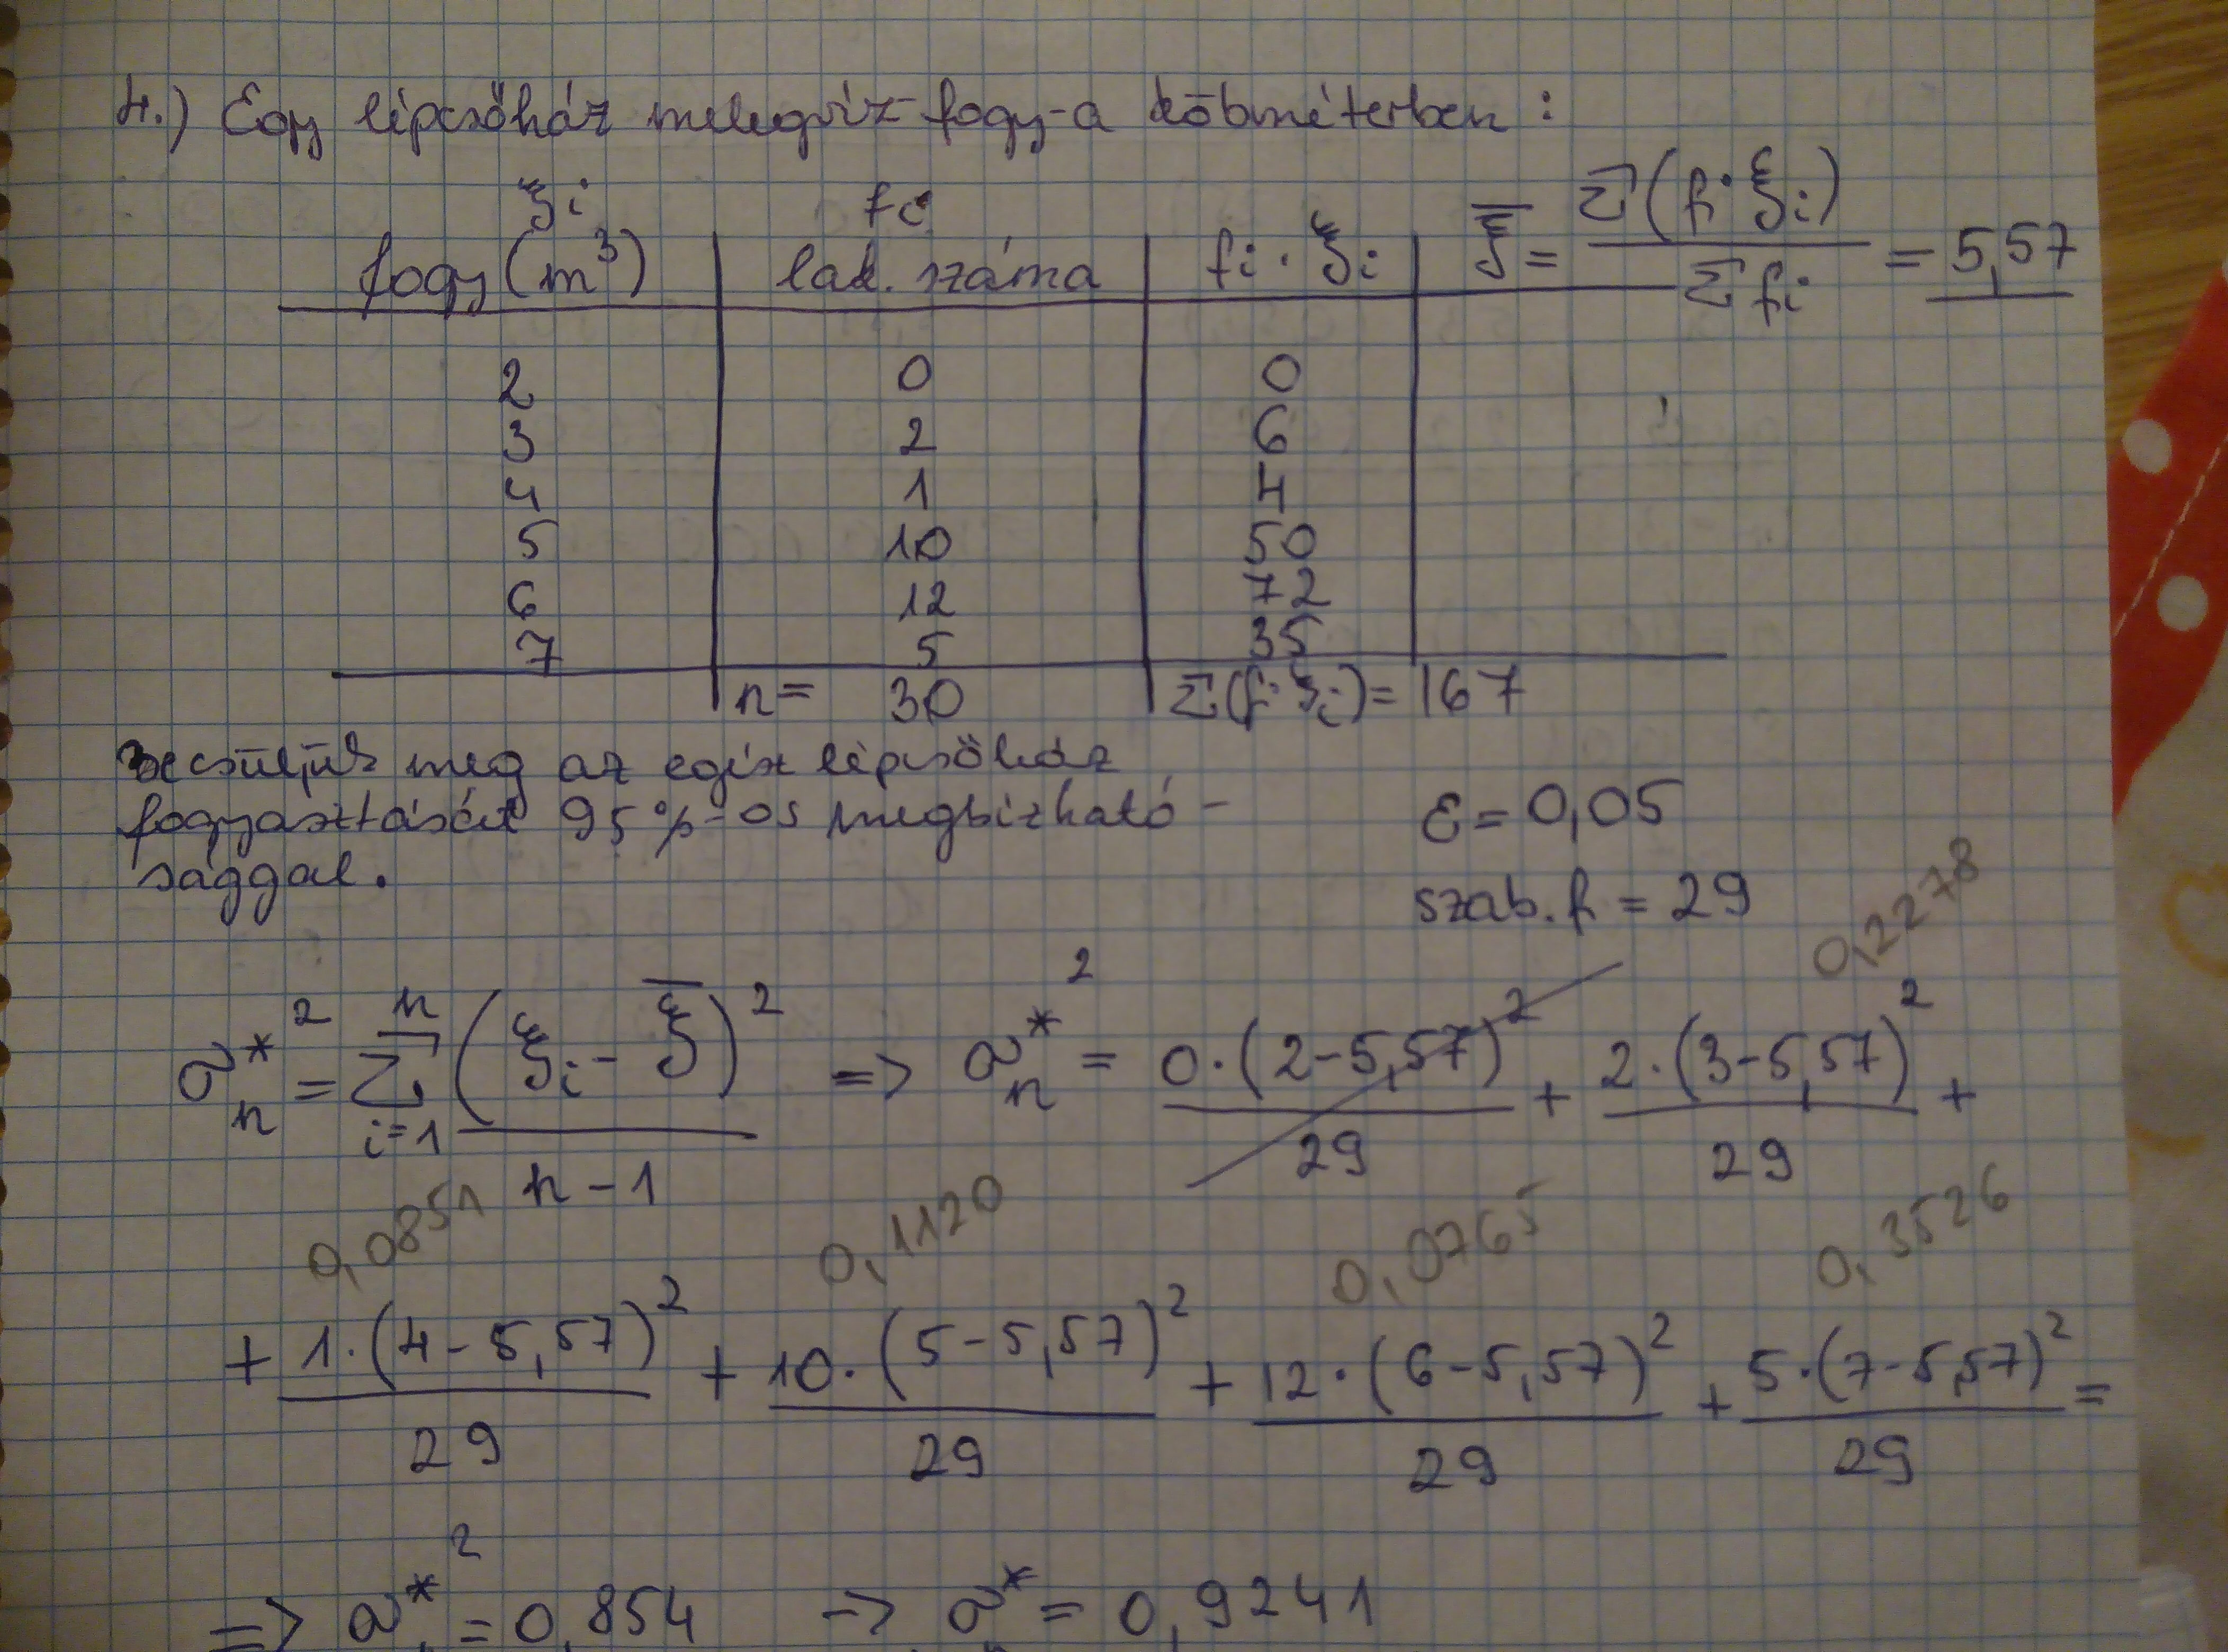 4.) Egy lépcsőház melegvíz-fogy-a köbméterben:
ξi fi
fogy (m³) lak. száma fi · ξi ξ̅ = Σ(fi·ξi) / Σfi = 5,57
2 0 0
3 2 6
4 1 4
5 10 50
6 12 72
7 5 35
n= 30 Σ(fi·ξi)= 167
Becsüljük meg az egész lépcsőház
fogyasztását 95%-os megbízható-
sággal.
ε = 0,05
szab.f = 29
0,2278
σn*² = Σ i=1 n (ξi - ξ̅)² / n-1 => σn*² = 0·(2-5,57)² / 29 + 2·(3-5,57)² / 29 +
0,0851 0,1120 0,0765 0,3526
+ 1·(4-5,57)² / 29 + 10·(5-5,57)² / 29 + 12·(6-5,57)² / 29 + 5·(7-5,57)² / 29 =
=> σ*² = 0,854 -> σ* = 0,9241